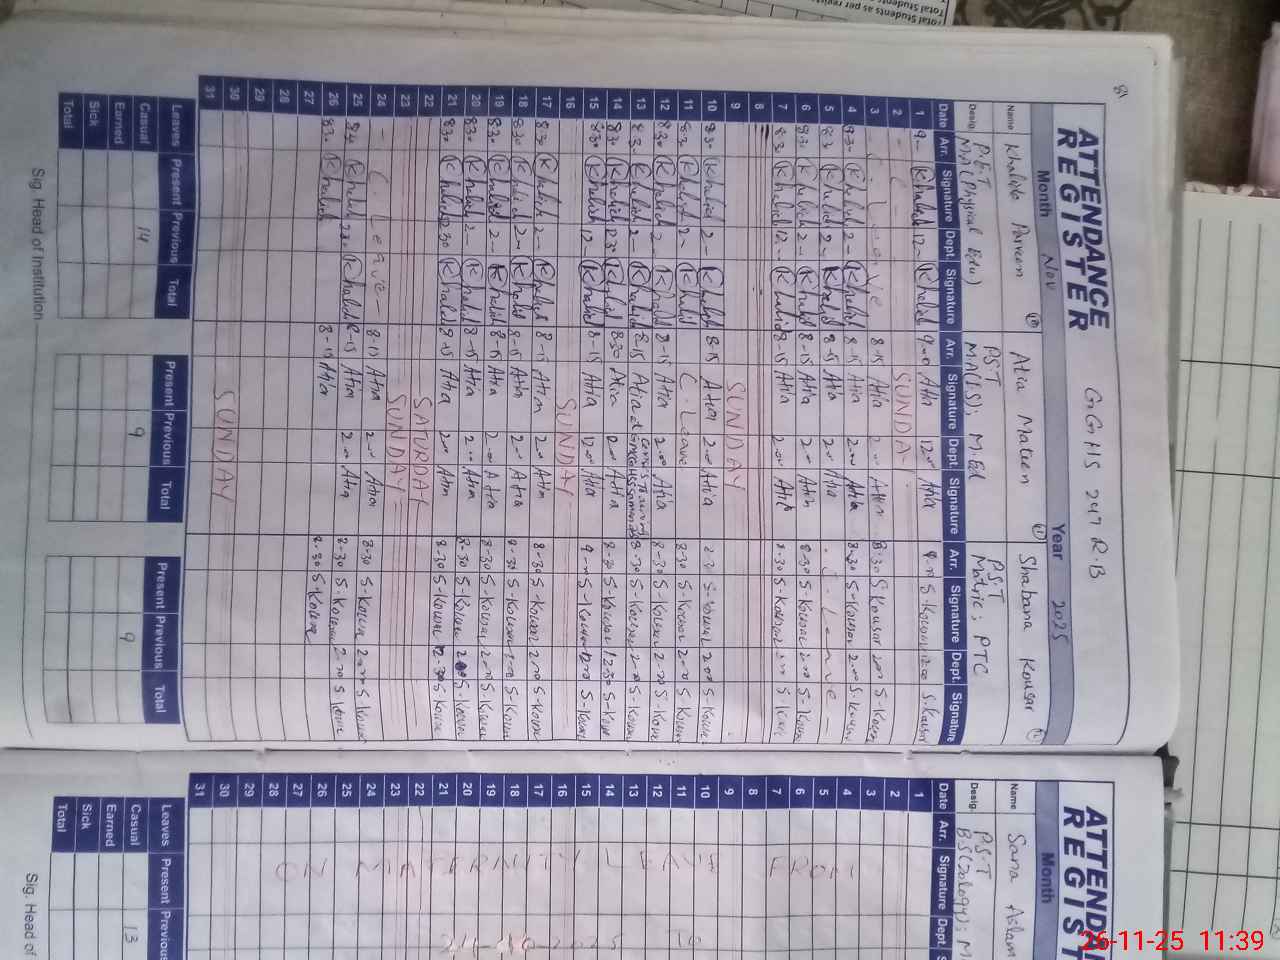 81
ATTENDANCE REGISTER
GGHS 247 R.B
Month Nov Year 2025
Name Khalida Parveen
Atia Mateen
Shabana Kousar
Desig. P.E.T
M.A (Physical Edu)
PST
MA(IS); M.Ed
PST
Matric; PTC
Date Arr. Signature Dept. Signature Arr. Signature Dept. Signature Arr. Signature Dept. Signature
1 9- Khalid 12- Khalid 9-00 Atia 12-00 Atia 9-00 S-Kousar 12-00 S-Kousar
2 SUNDAY
3 C. Leave 8-15 Atia 2-00 Atia 8-30 S-Kousar 2-00 S-Kousar
4 Khalid 2- Khalid 8-15 Atia 2-00 Atia 8-30 S-Kousar 2-00 S-Kousar
5 8:30 Khalid 2- Khalid 8-15 Atia 2-00 Atia C-Leave
6 8:30 Khalid 2- Khalid 8-15 Atia 2-00 Atia 8-30 S-Kousar 2-00 S-Kousar
7 8:30 Khalid 12- Khalid 8-15 Atia 2-00 Atia 8-30 S-Kousar S-Kousar
8
9 SUNDAY
10 8:30 Khalid 2- Khalid 8-15 Atia 2-00 Atia S-Kousar 2-00 S-Kousar
11 8:30 Khalid 2- Khalid C. Leave 8-30 S-Kousar 2-00 S-Kousar
12 8:30 Khalid 2- Khalid 8-15 Atia 2-00 Atia 8-30 S-Kousar 2-00 S-Kousar
13 8:30 Khalid 2- Khalid 8-15 Atia 8-30 S-Kousar 2-00 S-Kousar
14 8:30 Khalid Khalid 8-30 Atia Atia 8-30 S-Kousar 12-30 S-Kousar
15 8:30 Khalid 12- Khalid 8-15 Atia 12-00 Atia 9-00 S-Kousar 12-00 S-Kousar
16 SUNDAY
17 8:30 Khalid 2- Khalid 8-15 Atia 2-00 Atia 8-30 S-Kousar 2-00 S-Kousar
18 8:30 Khalid 2- Khalid 8-15 Atia 2-00 Atia 8-30 S-Kousar 2-00 S-Kousar
19 8:30 Khalid 2- Khalid 8-15 Atia 2-00 Atia 8-30 S-Kousar 2-00 S-Kousar
20 8:30 Khalid 2- Khalid 8-15 Atia 2-00 Atia 8-30 S-Kousar 2-00 S-Kousar
21 8:30 Khalid Khalid 8-15 Atia 2-00 Atia 8-30 S-Kousar 12-30 S-Kousar
22 SATURDAY
23 SUNDAY
24 - C. Leave - 8-15 Atia 2-00 Atia 8-30 S-Kousar 2-00 S-Kousar
25 8:30 Khalid Khalid 8-15 Atia 2-00 Atia 8-30 S-Kousar 2-00 S-Kousar
26 8:30 Khalid 8-15 Atia 8-30 S-Kousar
27
28
29
30 SUNDAY
31
Leaves Present Previous Total Present Previous Total Present Previous Total
Casual 14 9 9
Earned
Sick
Total
Sig. Head of Institution
ATTENDA
REGIST
Month
Name Sana Aslam
Desig. PST
BS(Zology); M
Date Arr. Signature Dept. S
1
2
3
4
5
6
7
8
9
10
11
12
13
14
15
16
17
18
19
20
21
22
23
24
25
26
27
28
29
30
31
ON MATERNITY LEAVE FROM
2025 To
Leaves Present Previous
Casual 13
Earned
Sick
Total
Sig. Head of
Total Students as per regis
Total Students
26-11-25 11:39